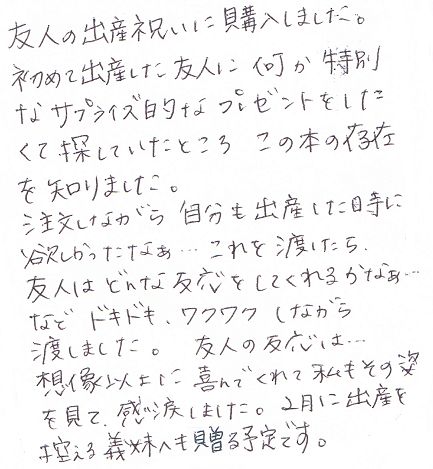 友人の出産祝いに購入しました。
初めて出産した友人に何か特別
なサプライズ的なプレゼントをした
くて探していたところ この本の存在
を知りました。
注文しながら 自分も出産した時に
欲しかったなぁ… これを渡したら、
友人はどんな反応をしてくれるかなぁ…
など ドキドキ、ワクワクしながら
渡しました。 友人の反応は…
想像以上に喜んでくれて私もその姿
を見て、感涙しました。2月に出産を
控える義妹へも贈る予定です。